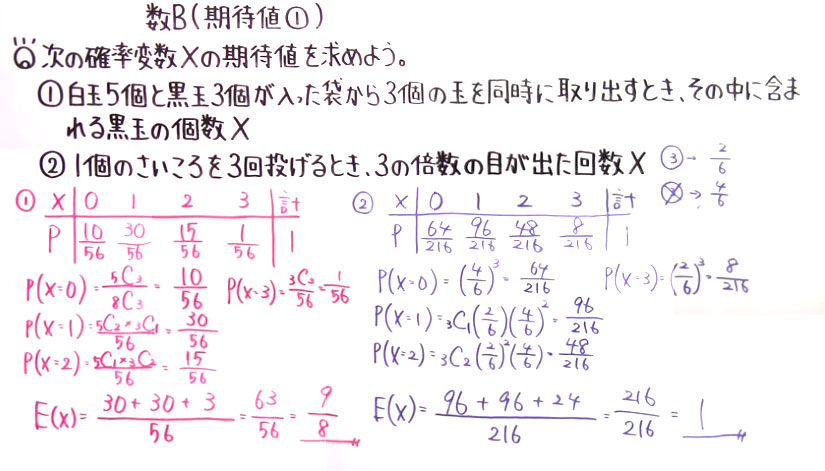 数B(期待値①)
次の確率変数Xの期待値を求めよう。
①白玉5個と黒玉3個が入った袋から3個の玉を同時に取り出すとき、その中に含ま
れる黒玉の個数X
②1個のさいころを3回投げるとき、3の倍数の目が出た回数X
③→ 2/6
③̸→ 4/6
① X 0 1 2 3 計
P 10/56 30/56 15/56 1/56 1
P(X=0)=5C3/8C3=10/56 P(X=3)=3C3/56=1/56
P(X=1)=5C2×3C1/56=30/56
P(X=2)=5C1×3C2/56=15/56
E(X)=30+30+3/56=63/56=9/8
② X 0 1 2 3 計
P 64/216 96/216 48/216 8/216 1
P(X=0)=(4/6)³=64/216 P(X=3)=(2/6)³=8/216
P(X=1)=3C1(2/6)(4/6)²=96/216
P(X=2)=3C2(2/6)²(4/6)=48/216
E(X)=96+96+24/216=216/216=1